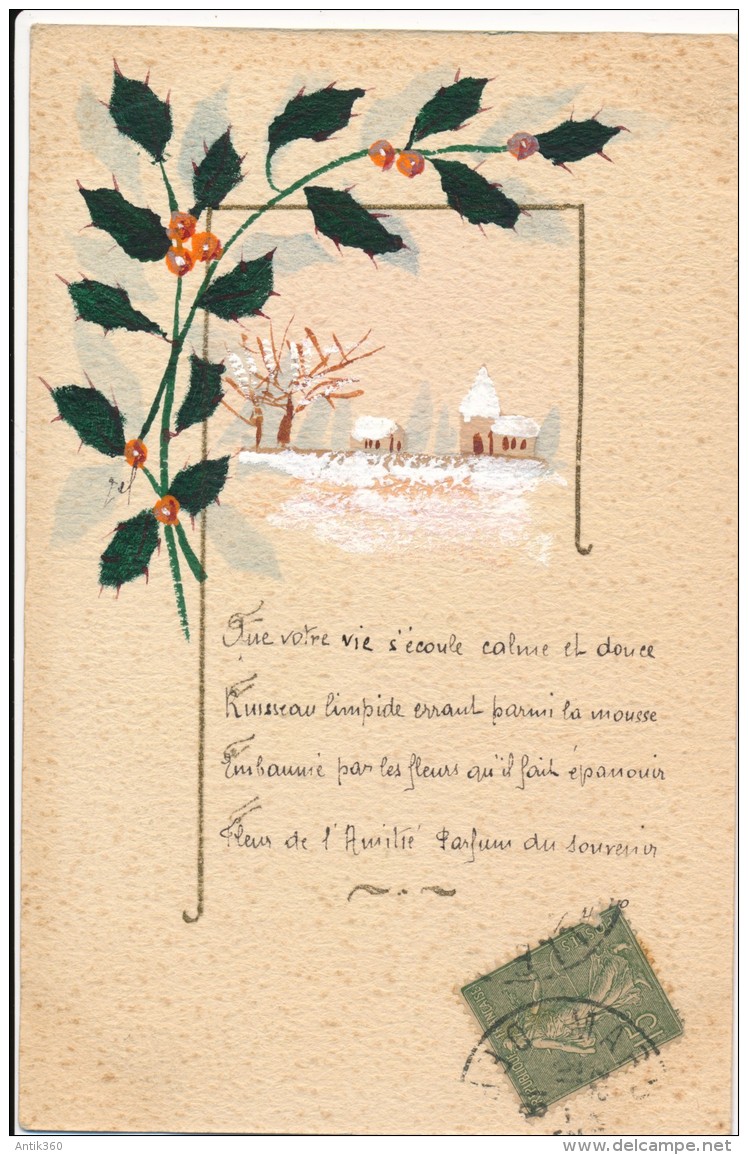 Que votre vie s'écoule calme et douce
Ruisseau limpide errant parmi la mousse
Embaumé par les fleurs qu'il fait épanouir
Fleur de l'Amitié Parfum du souvenir
POSTES
REPUBLIQUE FRANÇAISE
15
Antik360
delcampe.net